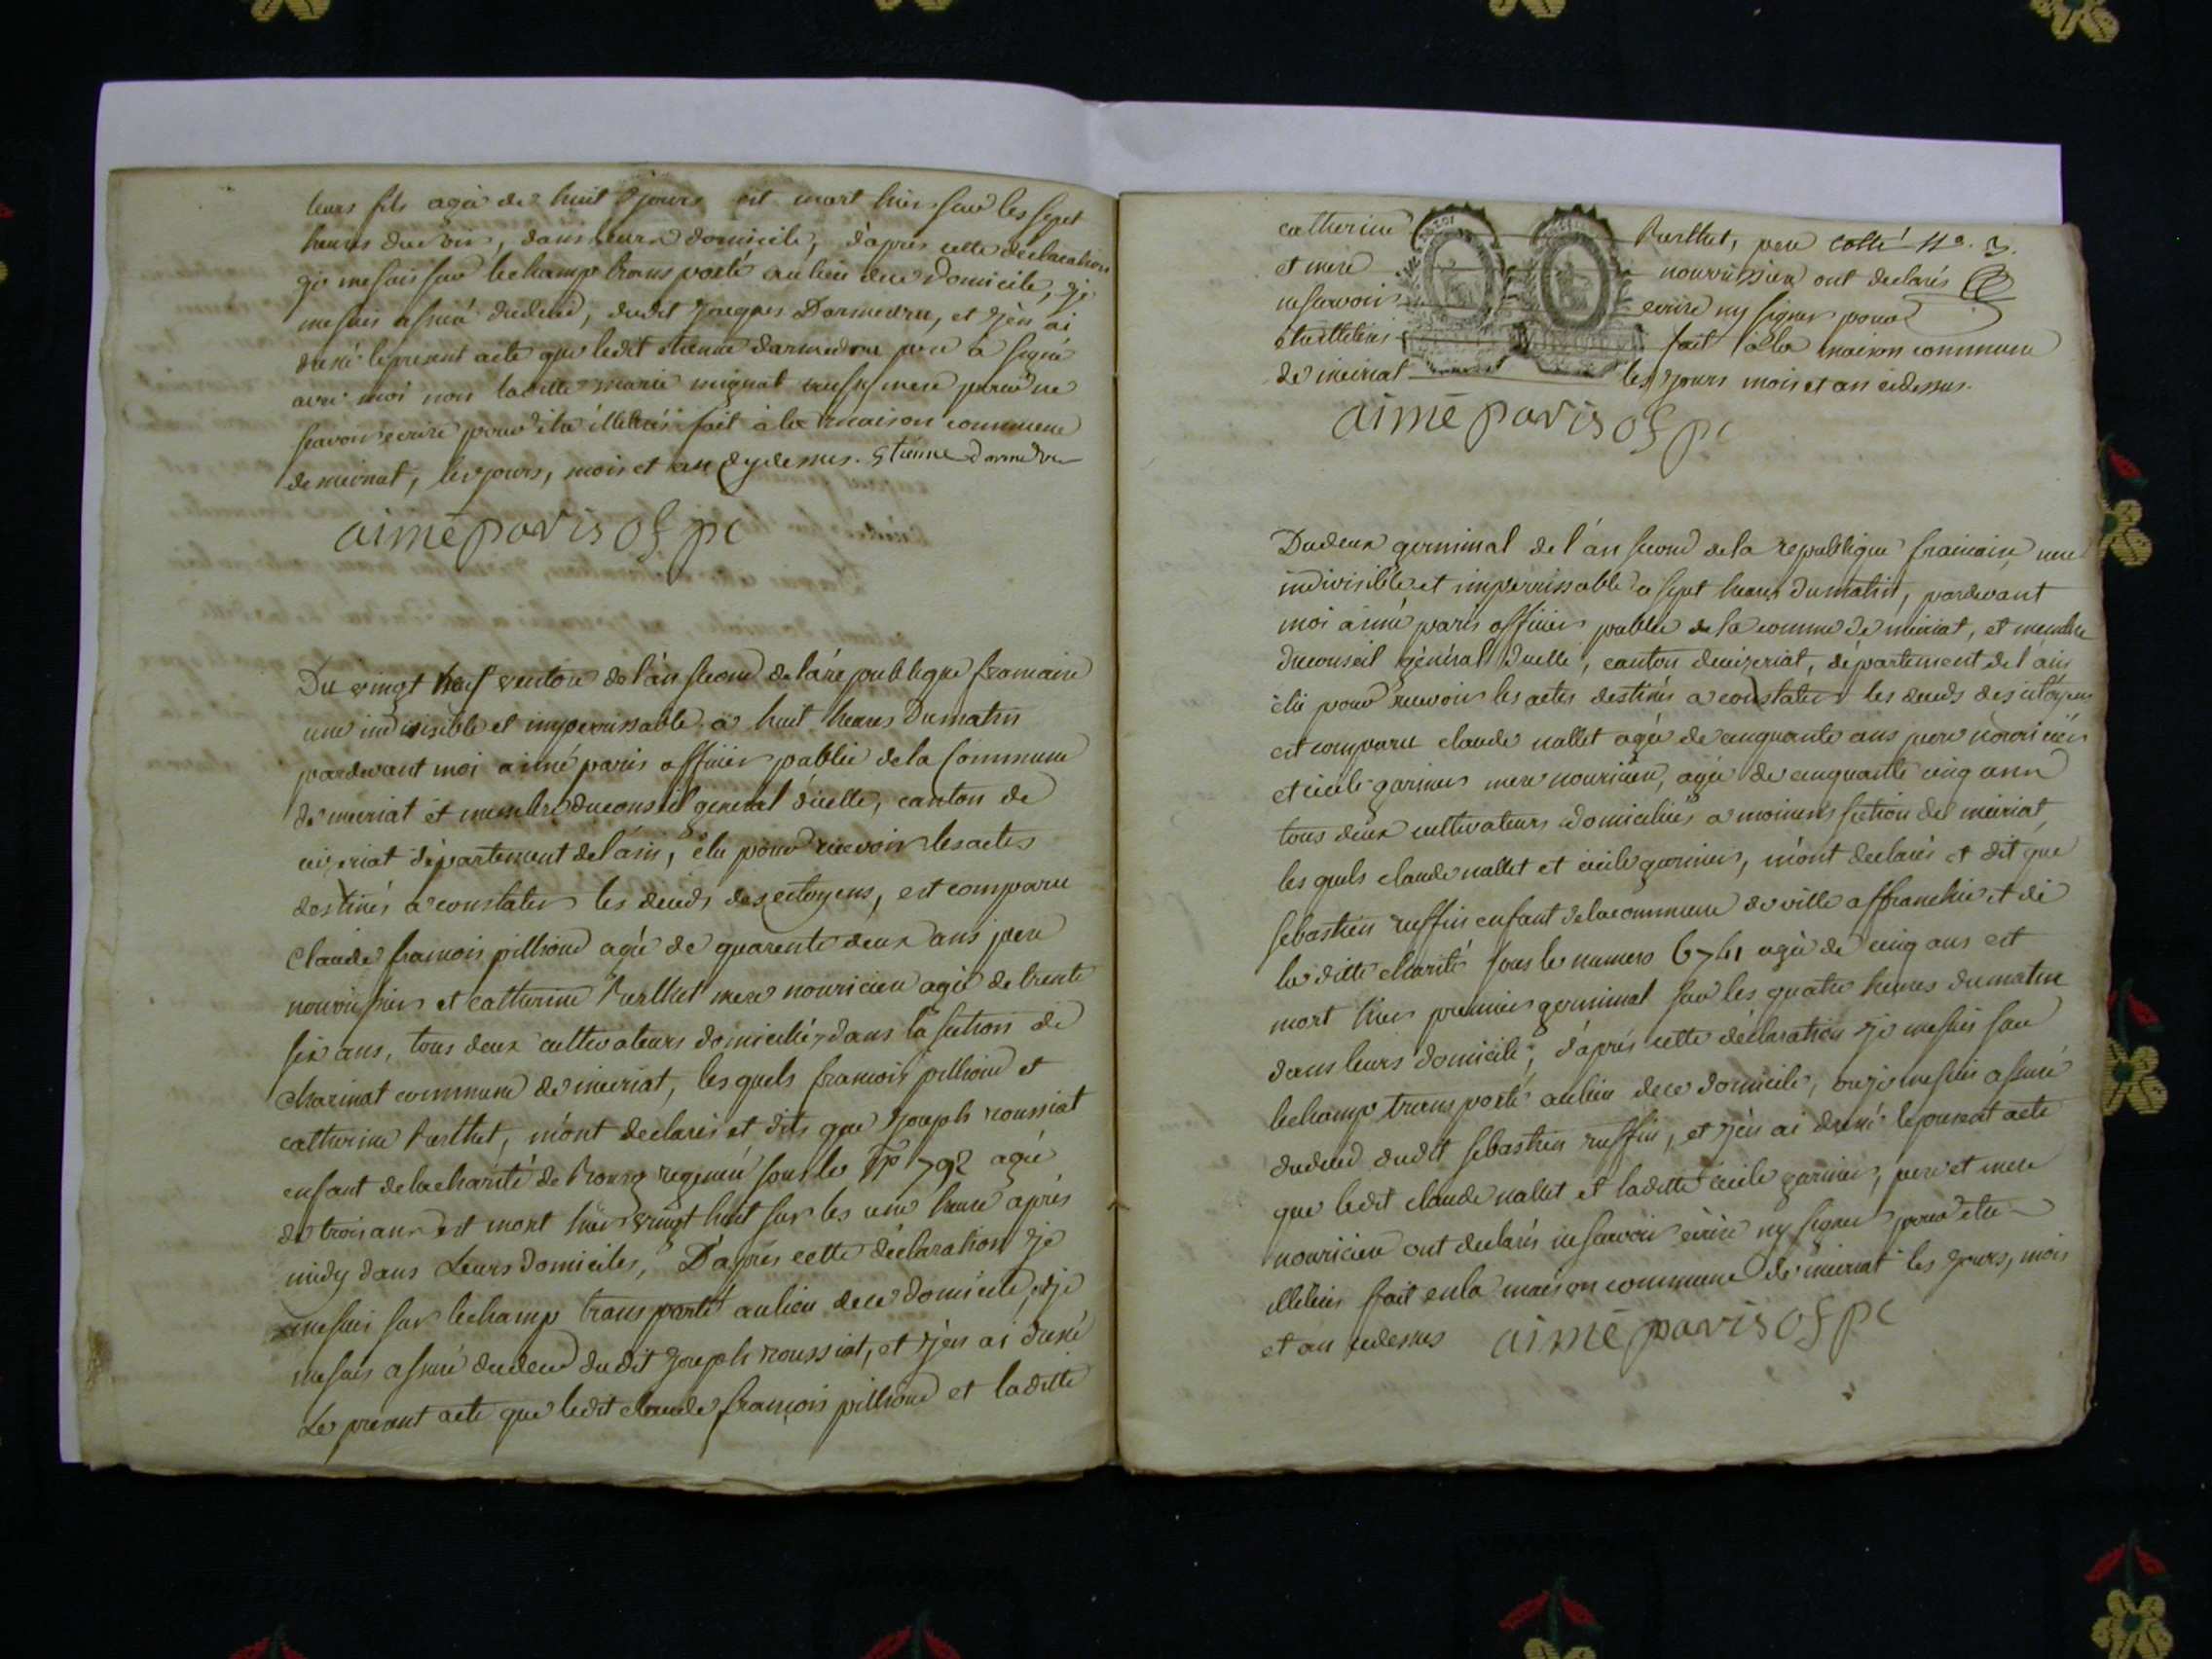 leurs fils agé de huit jours est mort hier sur les sept
heures du soir, dans leurs domicile, d'aprés cette déclaration
je me suis sur lechamp transporté au lieu dece domicile, je
me suis assuré dudecé, dudit jacques Darmedru, et j'en ai
dressé lepresent acte que ledit etienne darmedru pere a signé
avec moi non laditte marie mignat sa mere pour ne
scavoir ecrire pour etre illétrés fait à la maison commune
de meiriat, les jours, mois et an cydessus. Etienne darmedru
aimé paris of pc
Du vingt neuf ventose de l'an second de la république francaise
une indivisible et imperrissable a huit heures dumatin
pardevant moi aimé paris officier public dela Commune
de meiriat et membre duconseil general d'icelle, canton de
ceizeriat département del'ain, élu pour recevoir lesactes
destinés a constater les deces des citoyens, est comparu
Claude francois pilliond agé de quarente deux ans pere
nourissier et catherine Perthet mere nouriciere agée de trente
six ans, tous deux cultivateurs domiciliés dans la section de
charinat commune de meiriat, lesquels francois pilliond et
catherine Perthet, m'ont declarés et dits que joseph roussiat
enfant delacharité de Bourg sous le no 792 agé
de trois ans est mort hier vingt huit sur les une heure aprés
midy dans Leurs domiciles, D'aprés cette déclaration je
mesuis sur lechamp transporté aulieu dece domicile, et je
mesuis assuré dudecé dudit joseph roussiat, et j'en ai dressé
Le present acte que ledit claude françois pilliond et laditte
catherine Perthet, pere Cotté No. 3.
et mere nourrissiers ont declarés
nesavoir ecrire ny signer pour
etreilletrés fait à la maison commune
de meiriat les jours mois et an cidessus.
aimé paris of pc
Dudeux germinal de l'an second dela republique francaise, une
indivisible et imperrissable a sept heures dumatin, pardevant
moi aimé paris officier public de la comune de meiriat, et membre
duconseil général d'icelle, canton deceizeriat, département de l'ain
élu pour recevoir les actes destinés a constater les deces des citoyens
est comparu claude nallet agé de cinquante ans pere nouricier
et cécile garnier mere nouriciere, agée de cinquante cinq ans
tous deux cultivateurs domiciliés a moinens section de meiriat,
les quels claude nallet et cécile garnier, m'ont declarés et dit que
sebastien ruffin enfant delacommune de ville affranchie et de
la ditte charité sous le numero 6741 agé de cinq ans est
mort hier premier germinal sur les quatre heures dumatin
dans leurs domicile, d'aprés cette déclaration je mesuis sur
lechamp transporté aulieu dece domicile, ou je mesuis assuré
dudecé dudit sebastien ruffin, et j'en ai dressé lepresent acte
que ledit claude nallet et laditte cécile garnier, pere et mere
nouriciers ont declarés nesavoir écrire ny signer pour etre
illétrés fait enla maison commune de meiriat les jours, mois
et an cidessus aimé paris of pc